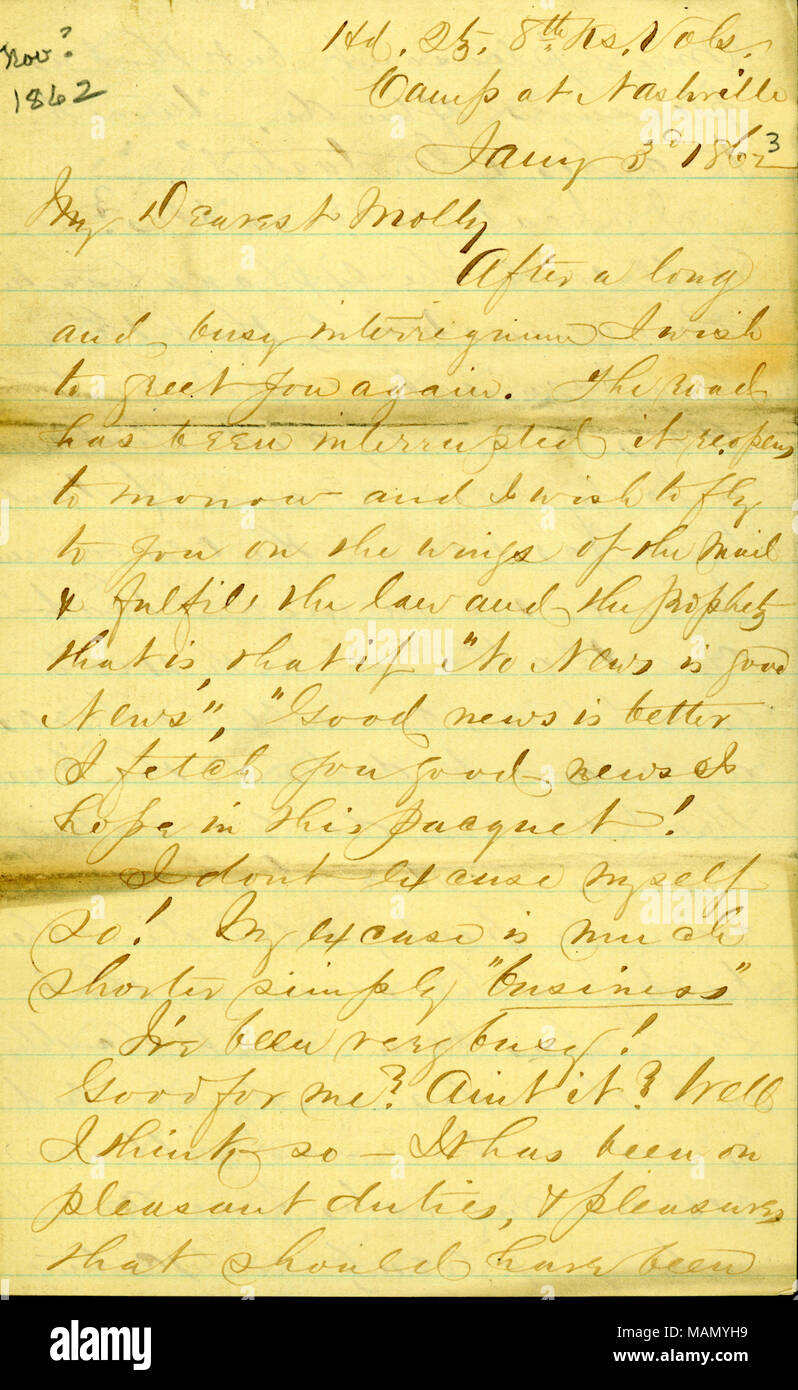 Nov?
1862
Hd. Qs. 8th Ks. Vols.
Camp at Nashville
Jany 3d 1862 3
My Dearest Molly
After a long
and busy interregnum I wish
to greet you again. The road
has been interrupted it reopens
to morrow and I wish to fly
to you on the wings of the Mail
& fulfil the law and the prophets
that is, that if "No News is good
News", "Good news is better
I fetch you good news I
hope in this pacquet!
I dont excuse myself
so! My excuse is much
shorter simply "business"
I've been very busy!
Good for me? Aint it? Well
I think so — It has been on
pleasant duties, & pleasures
that should have been
alamy
Image ID: MAMYH9
www.alamy.com